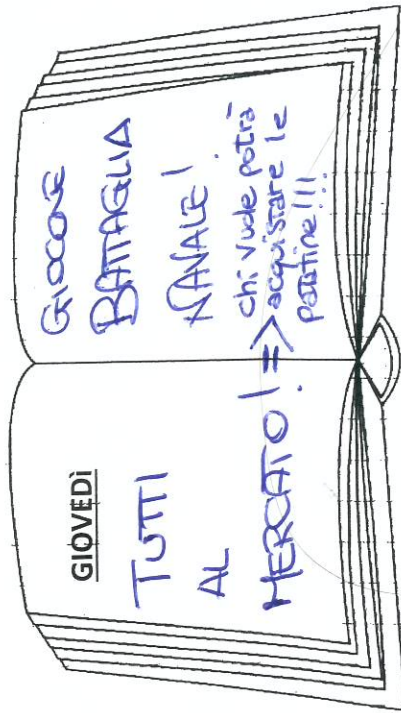 GIOVEDÌ
TUTTI
AL
MERCATO! =>
GIOCONE
BATTAGLIA
NAVALE!
chi vuole potrà
acquistare le
patatine!!!